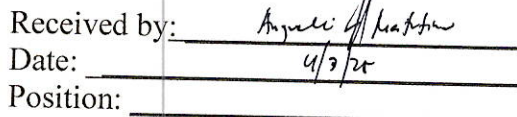 Received by:
Date: 4/3/25
Position: